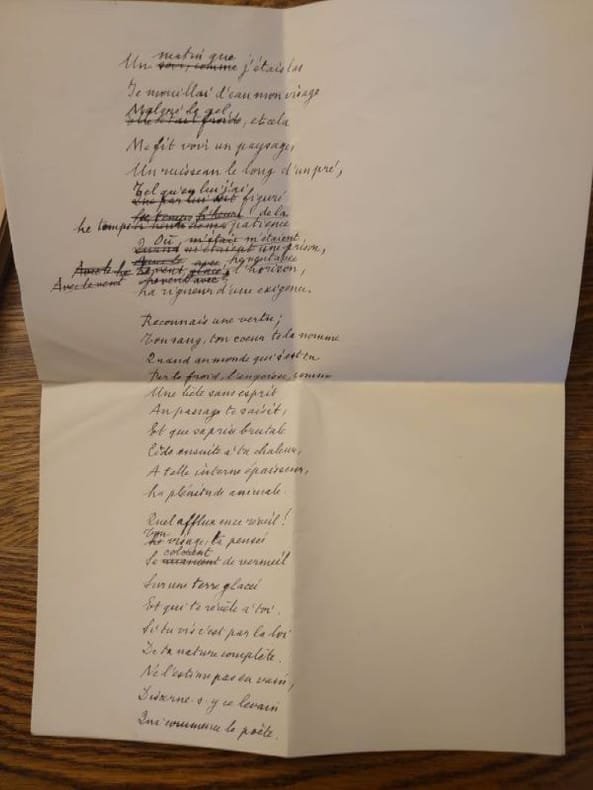 matin que
Un soir, comme j'étais las
Je mouillai d'eau mon visage
Malgré le gel
elle était froide, et cela
Me fit voir un paysage,
Un ruisseau le long d'un pré,
Tel qu'en lui j'ai
Que par lui soit figuré
de la
Le temps patience
Où, m'était m'étaient
Quand m'étaient une prison,
avec, l'angulaire
l'horizon,
Avec le vent
La rigueur d'une exigence.
Reconnais une vertu;
Ton sang, ton coeur te la nomme
Quand au monde qui s'est tu
Par le froid, l'angoisse, comme
Une bête sans esprit
Au passage te saisit,
Et que sa prise brutale
Cède ensuite à ta chaleur,
A telle interne épaisseur,
La plénitude animale.
Quel afflux en ce réveil!
Ton
Le visage, ta pensée
colorent
Se de vermeil
Sur une terre glacée
Et qui te révèle à toi.
Si tu vis c'est par la loi
De ta nature complète.
Ne l'estime pas en vain,
Discerne-s-y ce levain
Qui commence le poète.